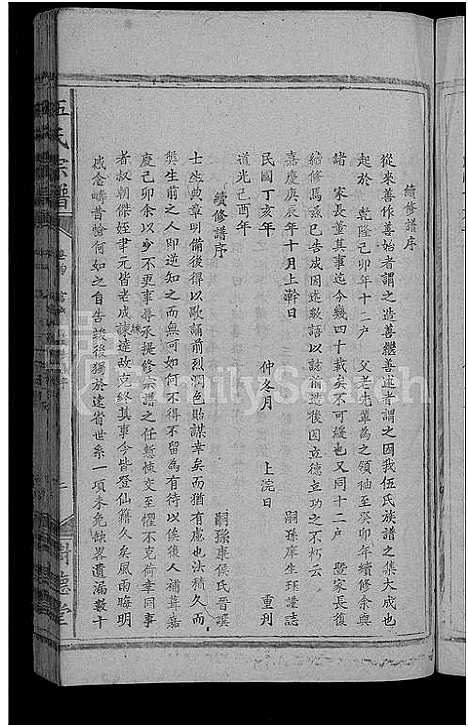 續修譜序
從來善作善始者謂之造善繼善述者謂之因我伍氏族譜之集大成也
起於 乾隆己卯年十二户 父老先輩為之領袖至癸卯年續修余與
諸 家長董其事迄今幾四十載矣不可緩也又同十二户 暨家長復
給修焉茲已告成因述敢語以誌前造後因立德立功之不朽云
嘉慶庚辰年十月上澣日 嗣孫康生珏謹誌
民國丁亥年 仲冬月 上浣日 重刋
道光己酉年
續修譜序
嗣孫康侯氏晋謨
士生典章明備後得以歌誦前烈潤色貽謀幸矣而猶有慮也法積久而
獘生前之人即逆知之而無可如何不得不留為有待以俟後人補葺嘉
慶己卯余以少不更事尋承提修宗譜之任慙悚交至懼不克荷幸同事
者叔朝傑姪聿元皆老成諫達故克終其事今皆登仙籍久矣風雨晦明
感念疇昔愴何如之自告竣後獨於遠省世系一項未免缺畧遺漏數十
伍氏宗譜
樹德堂
FamilySearch